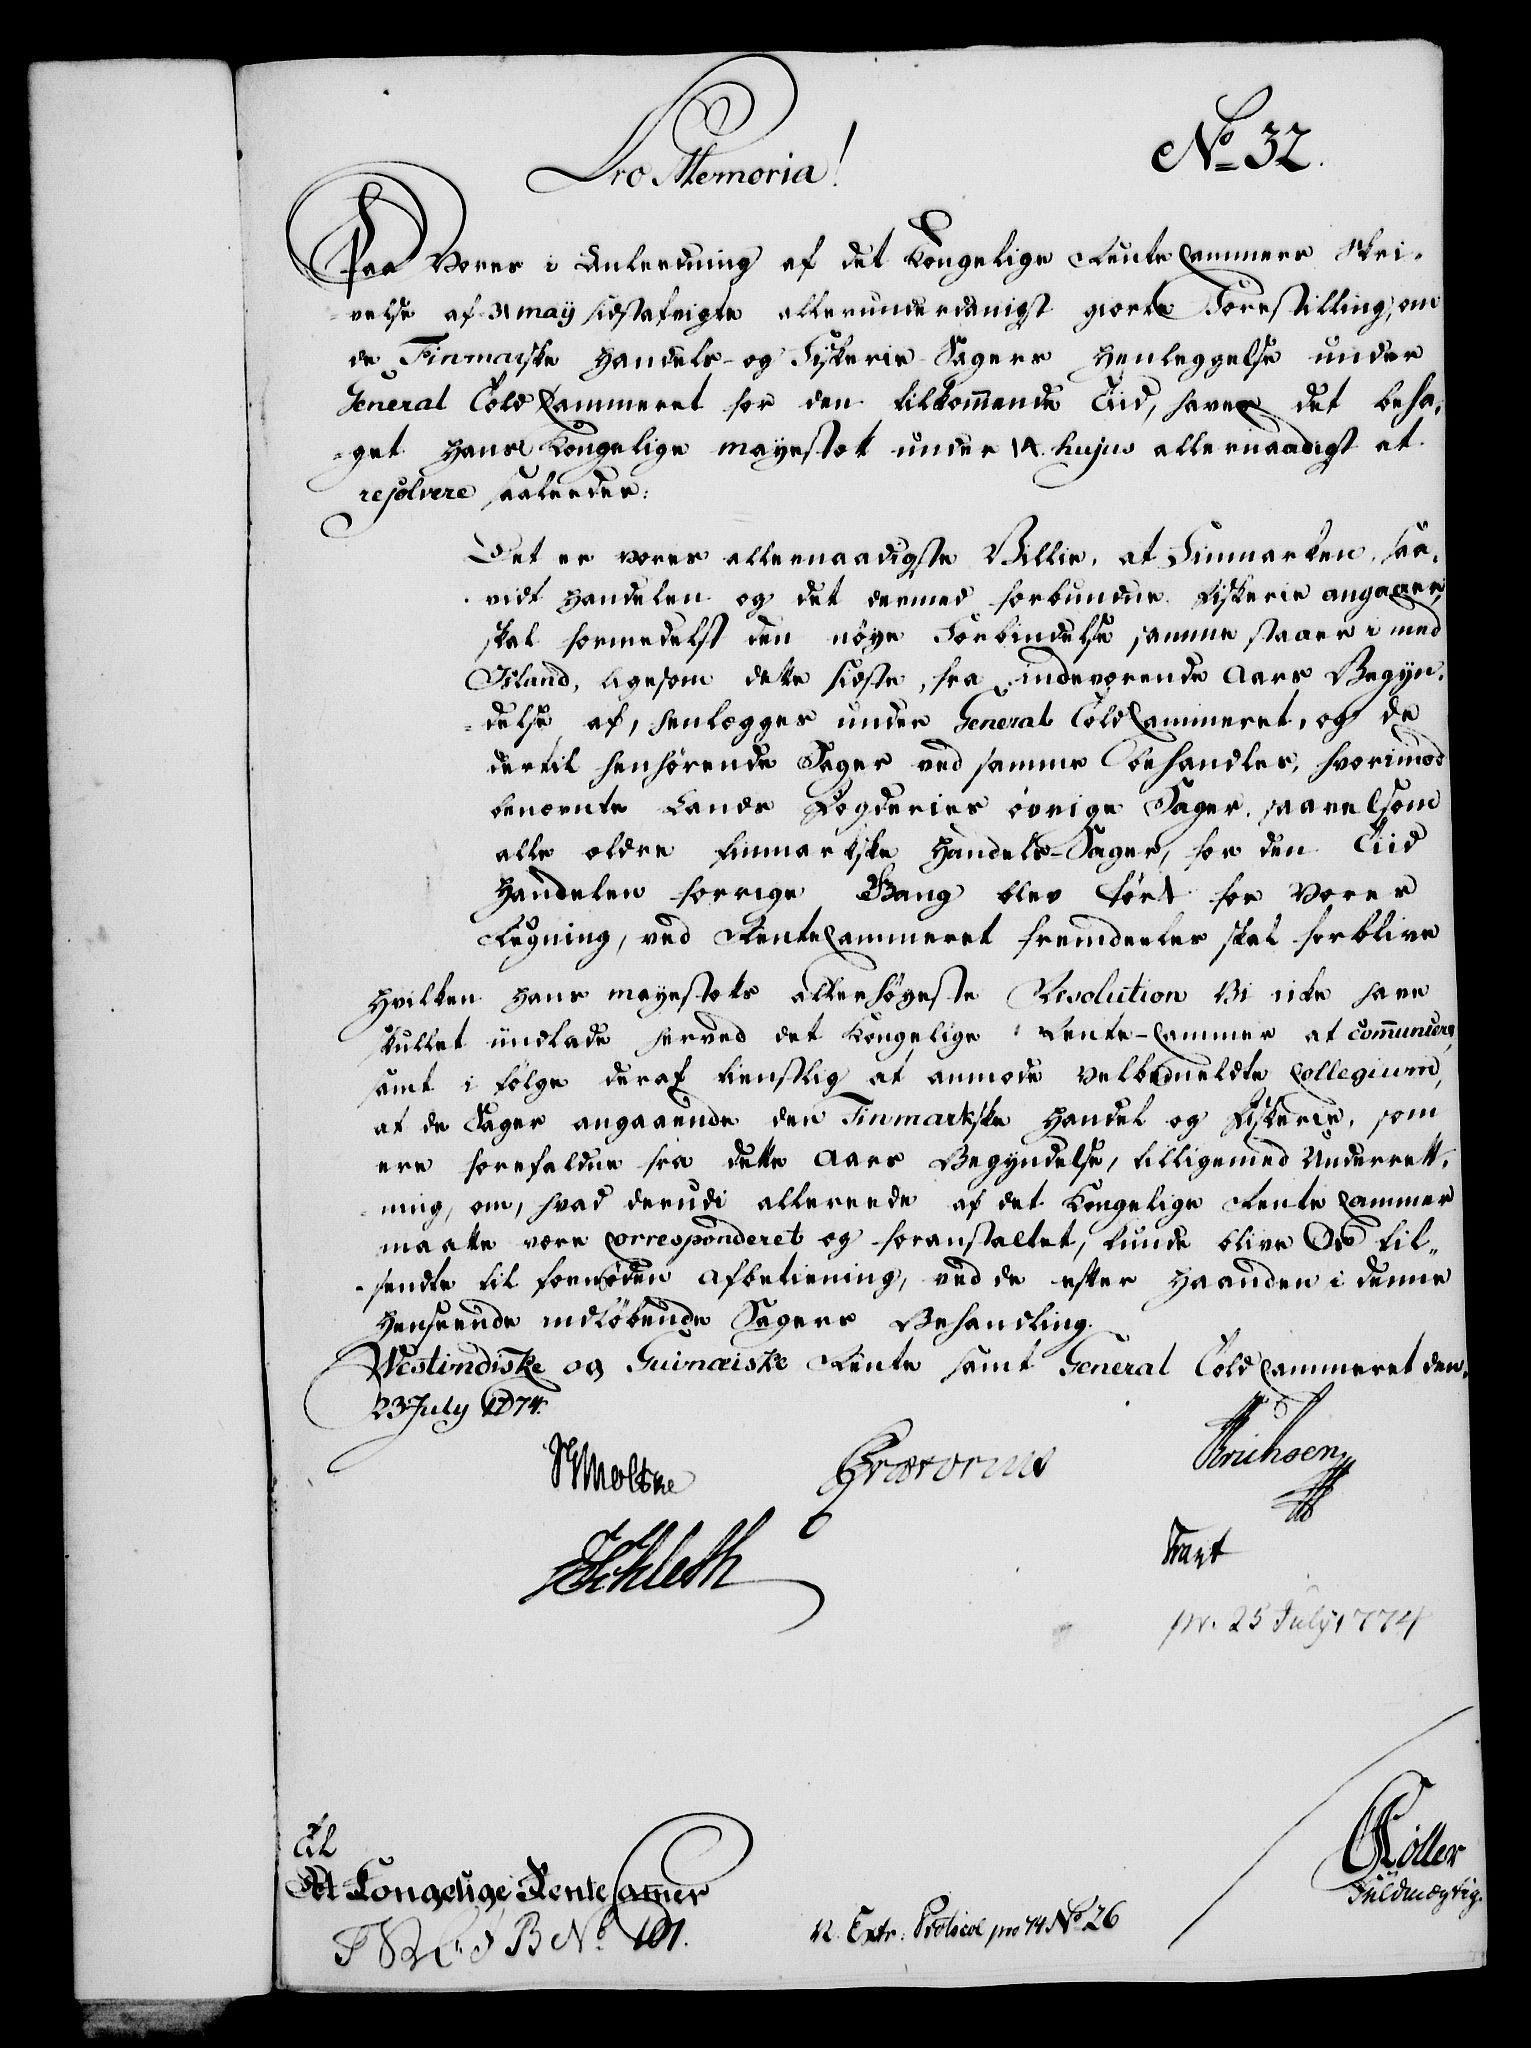 Pro Memoria!
No 32.
Paa Vores i Anleedning af det Kongelige Rente Cammers Skri-
velse af 31 may sidstafvigte allerunderdanigst giorte Forestilling, om
de Finmarske Handels- og Fiskerie-Sagers Henleggelse under
General Told Cammeret for den tilkommende Tiid, haver det beha-
get Hans Kongelige Mayestæt under 14. hujus allernaadigst at
resolvere saaleedes:
Det er vores allernaadigste Villie, at Finmarken, saa-
vidt Handelen og det dermed forbundne Fiskerie angaaer,
skal formedelst den nøye Forbindelse samme staaer i med
Island, ligesom dette sidste, fra indeværende Aars Begyn-
delse af, henlægges under General Told Cammeret, og de
dertil henhørende Sager ved samme behandles, hvorimod
benævnte Lands Fogderies øvrige Sager, saavelsom
alle ældre finmarkske Handels-Sager, for den Tiid
Handelen forrige Gang blev ført for Vores
Regning, ved Rente Cammeret fremdeeles skal forblive
Hvilken Hans Mayestæts allerhøyeste Resolution Vi icke have
skullet undlade herved det Kongelige Rente-Cammer at communicere,
samt i følge deraf tienstlig at anmode Velbemeldte Collegium,
at de Sager angaaende den Finmarkske Handel og Fiskerie, som
ere forefaldne fra dette Aars Begyndelse, tilligemed Underrett-
ning, om, hvad derudi allereede af det Kongelige Rente Cammer
maatte være Correspónderet og foranstaltet, kunde blive Os til-
sendte til fornøden Afbetiening, ved de efter Haanden i denne
Henseende indløbende Sagers Behandling.
Westindiske og Guinæiske Rente samt General Told Cammeret den
23 July 1774.
Moltke Prætorius Erichsen
Schleth
Trant
pr. 25 July 1774
Til
Det Kongelige Rente Camer
No 101.
N. Extr: Protocol pro 74 No 26
Köller
Fuldmægtig.